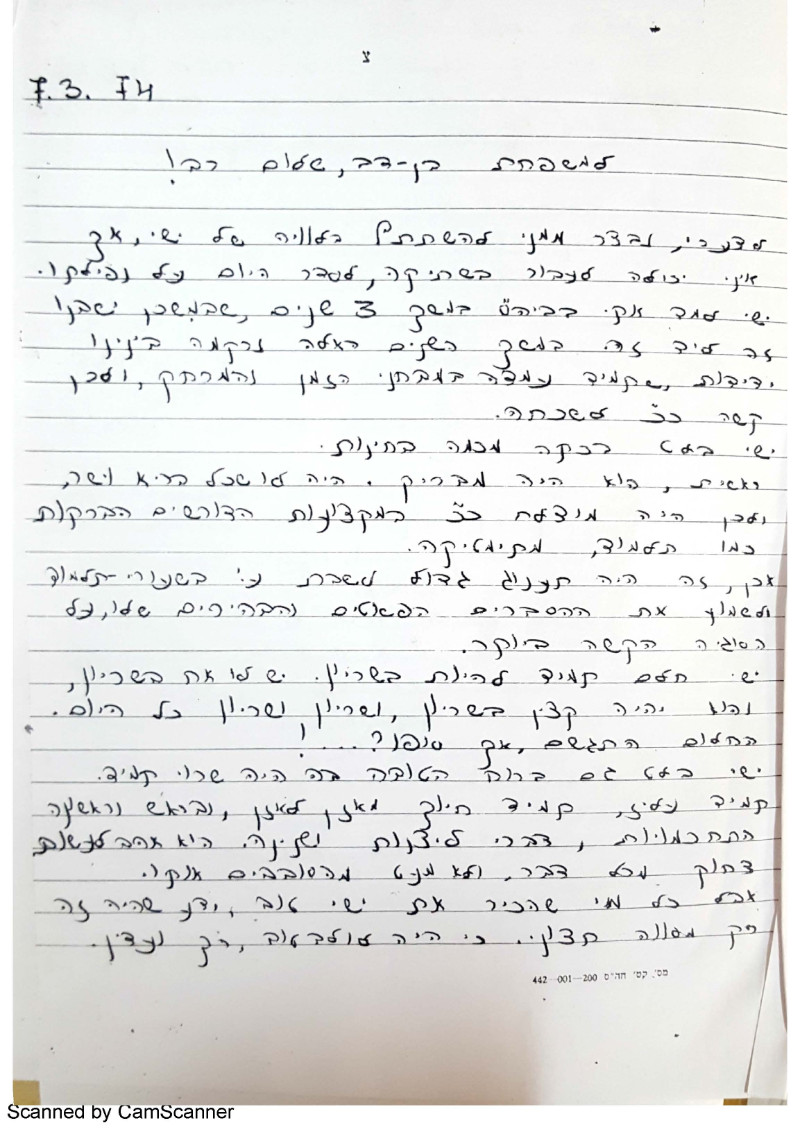 צ
7.3.74
למשפחת בן-דב, שלום רב!
לצערי, נבצר ממני להשתתף בלוויה של ישי, אך
איני יכולה לעבור בשתיקה, לסדר היום על נפילתו.
ישי למד אתי בביה"ס במשך 3 שנים, שבמשכן ישבנו
זה ליד זה. במשך השנים האלה נרקמה בינינו
ידידות, שתמיד עמדה במבחני הזמן והמרחק, ולכן
קשה כ"כ לשכחה.
ישי בלט בכתה מכמה בחינות.
ראשית, הוא היה מבריק. היה לו שכל בריא וישר,
ולכן היה מוצלח כ"כ במקצועות הדורשים הברקות
כמו תלמוד, מתימטיקה.
אכן, זה היה תענוג גדול לשבת ע"י בשעורי-תלמוד
ולשמוע את ההסברים הפשוטים והבהירים שלו, על
הסוגיה הקשה ביותר.
ישי חלם תמיד להיות בשריון. יש לו אח בשריון,
והוא יהיה קצין בשריון, ושריון, ושריון כל היום.
החלום התגשם, אך סופו?...!
ישי בלט גם ברוח הטובה בה היה שרוי תמיד.
תמיד עליז, תמיד חיוך מאוזן לאוזן, ובראש וראשונה
התחכמויות, דברי ליצנות ושנינה. הוא אהב לעשות
צחוק מכל דבר, ולא מנע מהסובבים אותו.
אבל כל מי שהכיר את ישי טוב, ידע שהיה זה
רק מסווה חצוני. כי היה לו לב טוב, רך ועדין.
מס'. קס' חה"ס 200—001—442
Scanned by CamScanner